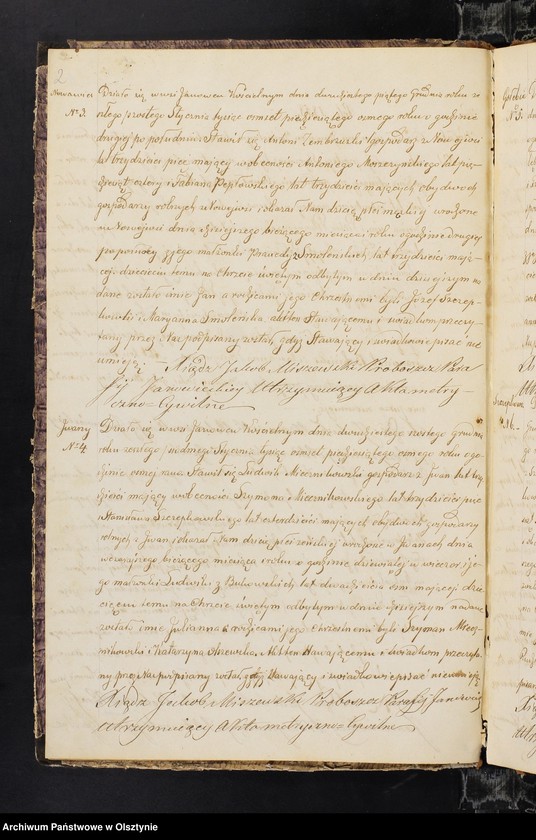 2
Nowawieś
N° 3.
Działo się w wsi Janowcu Kościelnym dnia dwudziestego piątego Grudnia roku ze-
szłego szóstego Stycznia tysiąc ośmset pięćdziesiątego osmego roku o godzinie
drugiej po południu. Stawił się Antoni Zembrzuski gospodarz z Nowejwsi
lat trzydzieści pięć mający w obecności Antoniego Morzezyńskiego lat pię-
dziesiąt cztery i Fabiana Pepłowskiego lat trzydzieści mających obydwóch
gospodarzy rolnych w Nowejwsi i okazał Nam dziecię płci męzkiej urodzone
w Nowejwsi dnia dzisiejszego bieżącego miesiąca i roku o godzinie drugiej
po północy z jego małżonki Prawedy z Smoleńskich lat trzydzieści mają-
cej. dziecięciu temu na Chrzcie świętym odbytym w dniu dzisiejszym na-
dane zostało imie Jan a rodzicami jego Chrzestnemi byli Józef Szczep-
kowski i Maryanna Smoleńska akt ten Stawającemu i świadkom przeczy-
tany przez Nas podpisany został gdyż Stawający i świadkowie pisać nie
umieją
Xiądz Jakob Miszewski Proboszcz Para
fij Janowieckiej Utrzymujący Akta metry-
czno-Cywilne
Jwany
N° 4.
Działo się w wsi Janowcu Kościelnym dnia dwudziestego szóstego Grudnia
roku zeszłego / siódmego Stycznia tysiąc ośmset pięćdziesiątego osmego roku o go-
dzinie osmej rano Stawił się Ludwik Miecznikowski gospodarz z Jwan lat trzy-
dzieści mający w obecności Szymona Miecznikowskiego lat trzydzieści pięć
i Stanisława Szczepkowskiego lat czterdzieści mających obydwóch gospodarzy
rolnych z Jwan i okazał Nam dziecię płci żeńskiej urodzone w Jwanach dnia
wczorajszego bieżącego miesiąca i roku o godzinie dziewiątej w wieczór z je-
go małżonki Ludwiki z Bukowskich lat dwadzieścia osm mającej dzie-
cięciu temu na Chrzcie świętym odbytym w dniu dzisiejszym nadane
zostało imie Julianna a rodzicami jego Chrzestnemi byli Szymon Miecz-
nikowski i Katarzyna Akt ten stawającemu i świadkom przeczyta-
ny przez Nas podpisany został gdyż Stawający i świadkowie pisać nieumieją
Xiądz Jakob Miszewski Proboszcz Parafij Janowiec
Utrzymujący Akta metryczno-Cywilne
Archiwum Państwowe w Olsztynie